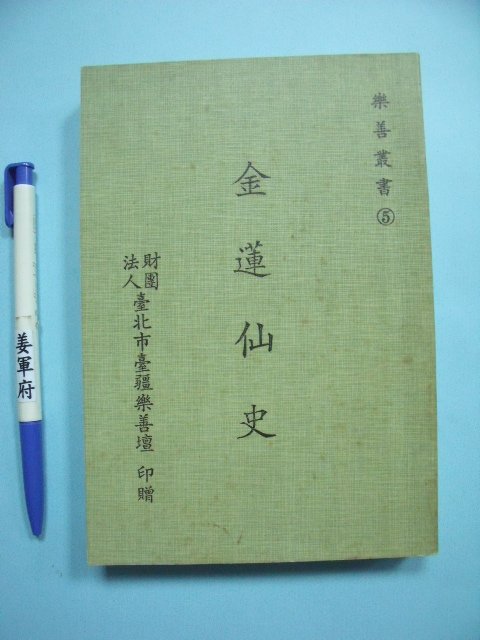 樂善叢書⑤
金蓮仙史
財團法人臺北市臺疆樂善壇 印贈
姜軍府